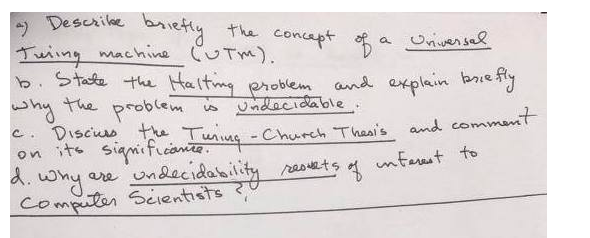 a) Describe briefly the concept of a Universal
Turing machine (UTM).
b. State the Halting problem and explain briefly
why the problem is undecidable.
c. Discuss the Turing - Church Thesis and comment
on its significance.
d. Why are undecidability results of interest to
Computer Scientists?